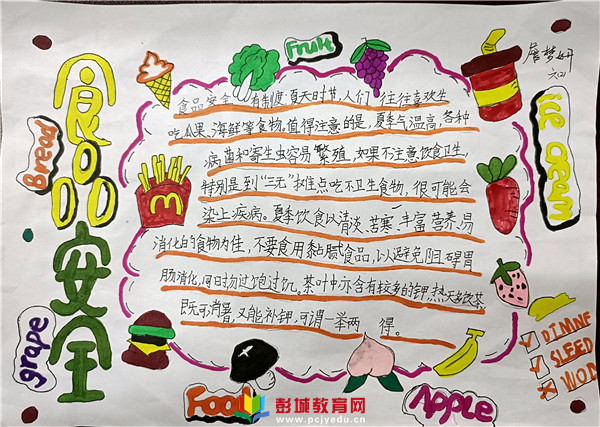 食品安全
Bread
grape
Fruit
ice cream
詹梦妍
六(2)
食品安全 有制度:夏天时节,人们往往喜欢生
吃瓜果、海鲜等食物,值得注意的是,夏季气温高,各种
病菌和寄生虫容易繁殖,如果不注意饮食卫生,
特别是到“三无”摊点吃不卫生食物,很可能会
染上疾病。夏季饮食以清淡、苦寒、丰富营养、易
消化的食物为佳,不要食用黏腻食品,以避免阻碍胃
肠消化,同时勿过饱过饥。茶叶中亦含有较多的钾,热天多饮茶,
既可消暑,又能补钾,可谓一举两得。
DIMNE
SLEED
WOD
Food
Apple
彭城教育网
www.pcjyedu.cn